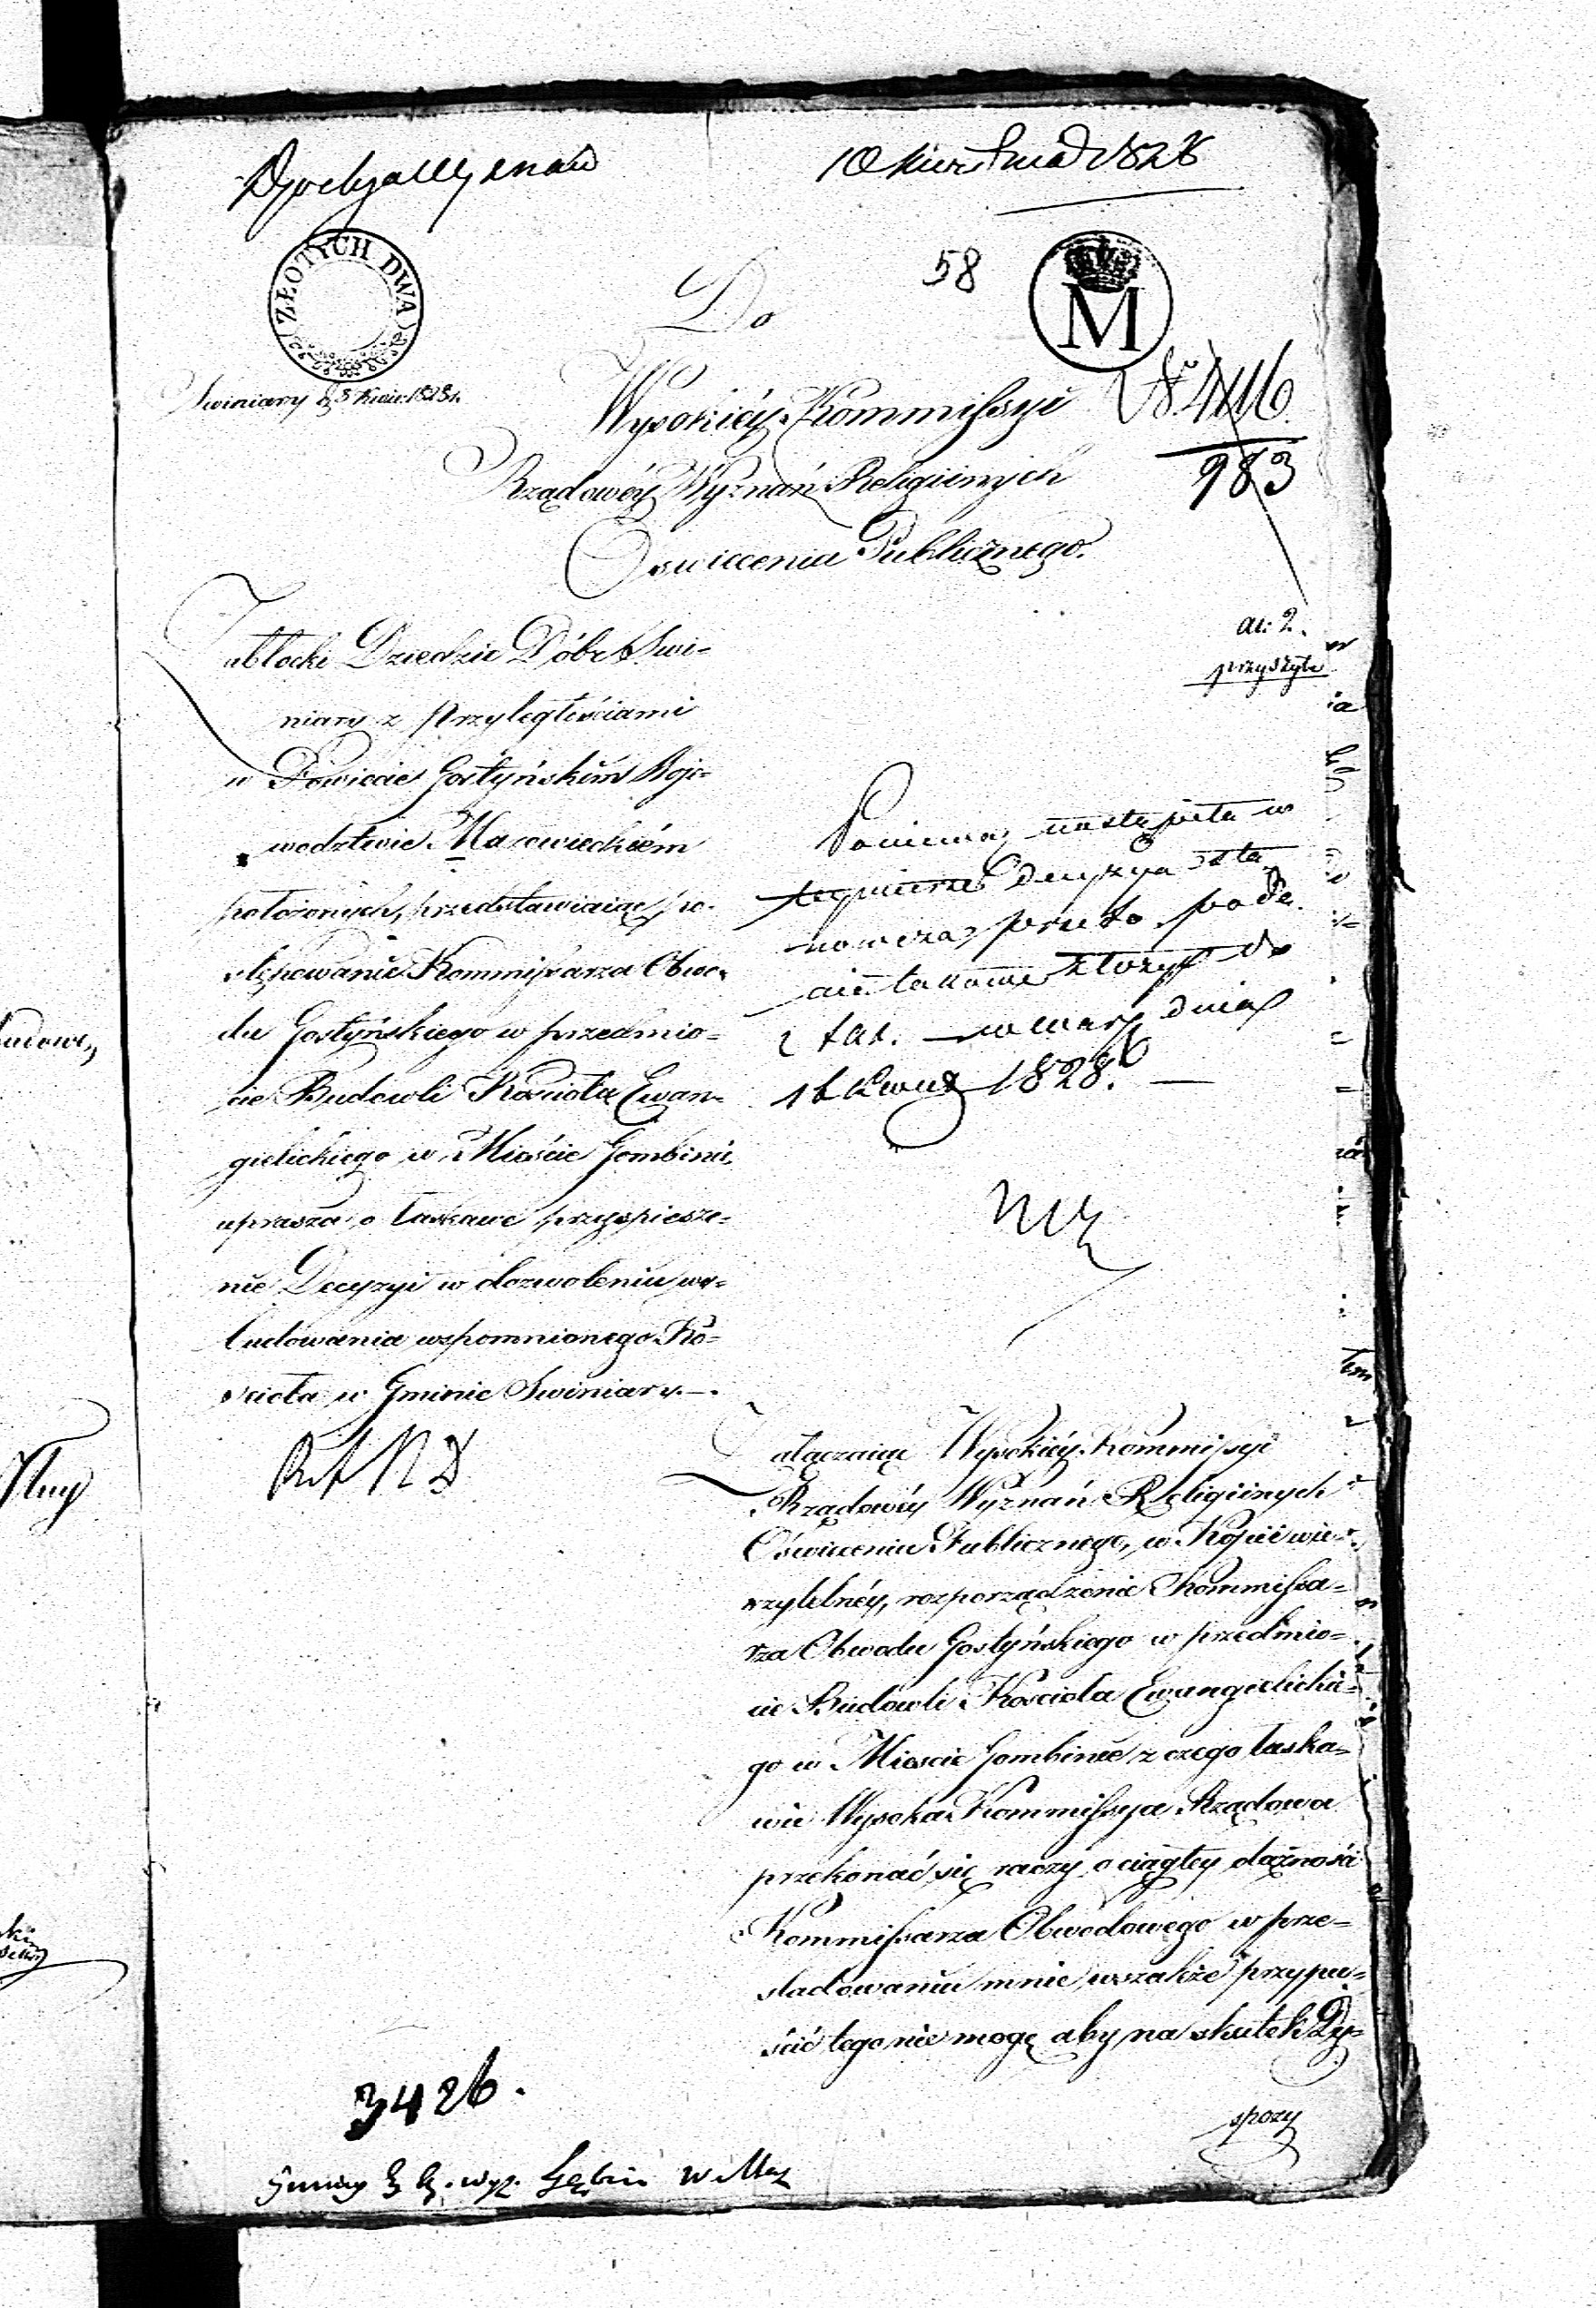 10 kwietnia 1828
58
ZŁOTYCH DWA
M
Do
Swiniary d. 8 Kwie: 1828 r.
Wysokiéy Kommissyi
№ 4116.
983
Rządowéy Wyznań Religiinych
Oswiecenia Publicznego.
al: 2.
przyszyte
Zabłocki Dziedzic Dóbr Swi-
niary z przyległościami
w Powiecie Gostyńskim Woje-
wodztwie Mazowieckiém
położonych, przedstawiaiąc po-
stępowanie Kommissarza Obwo-
du Gostyńskiego w przedmio-
cie Budowli Kościoła Ewan-
gielickiego w Mieście Gombinie,
uprasza o łaskawe przyspiesze-
nie Decyzyi w dozwoleniu wy-
budowania wspomnionego Ko-
scioła w Gminie Swiniary.—
Ponieważ nastąpiła w
decyzya sta
nowcza, przeto poda
nie takowe złożyć do
akt. — w Warsz dnia
16 Kwiet 1828.
Załączaiąc Wysokiéy Kommissyi
Rządowéy Wyznań Religiinych i
Oświecenia Publicznego, w Kopii wie-
rzytelnéy, rozporządzenie Kommissa-
rza Obwodu Gostyńskiego w przedmio-
cie Budowli Kościoła Ewangielickie-
go w Miescie Gombinie z czego łaska-
wie Wysoka Kommissya Rządowa
przekonać się raczy o ciągłey dążności
Kommissarza Obwodowego w prze-
sladowaniu mnie, wszakże przypu-
ścić tego nie mogę aby na skutek Dy-
spozy
3426.
Gminy Ew. wyz. Gąbin W. Maz